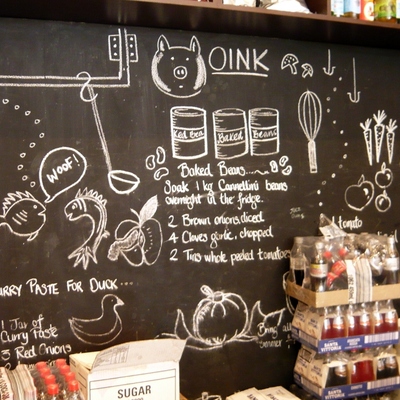 OINK
WOOF!
Baked Beans
Baked Beans......
Soak 1 kg Cannellini beans
overnight in the fridge.
2 Brown onions, diced
4 Cloves garlic, chopped
2 Tins whole peeled tomatoes
tomato
URRY PASTE FOR DUCK...
1 Jar of
Curry Paste
3 Red Onions
Bring all
SUGAR
SANTA VITTORIA